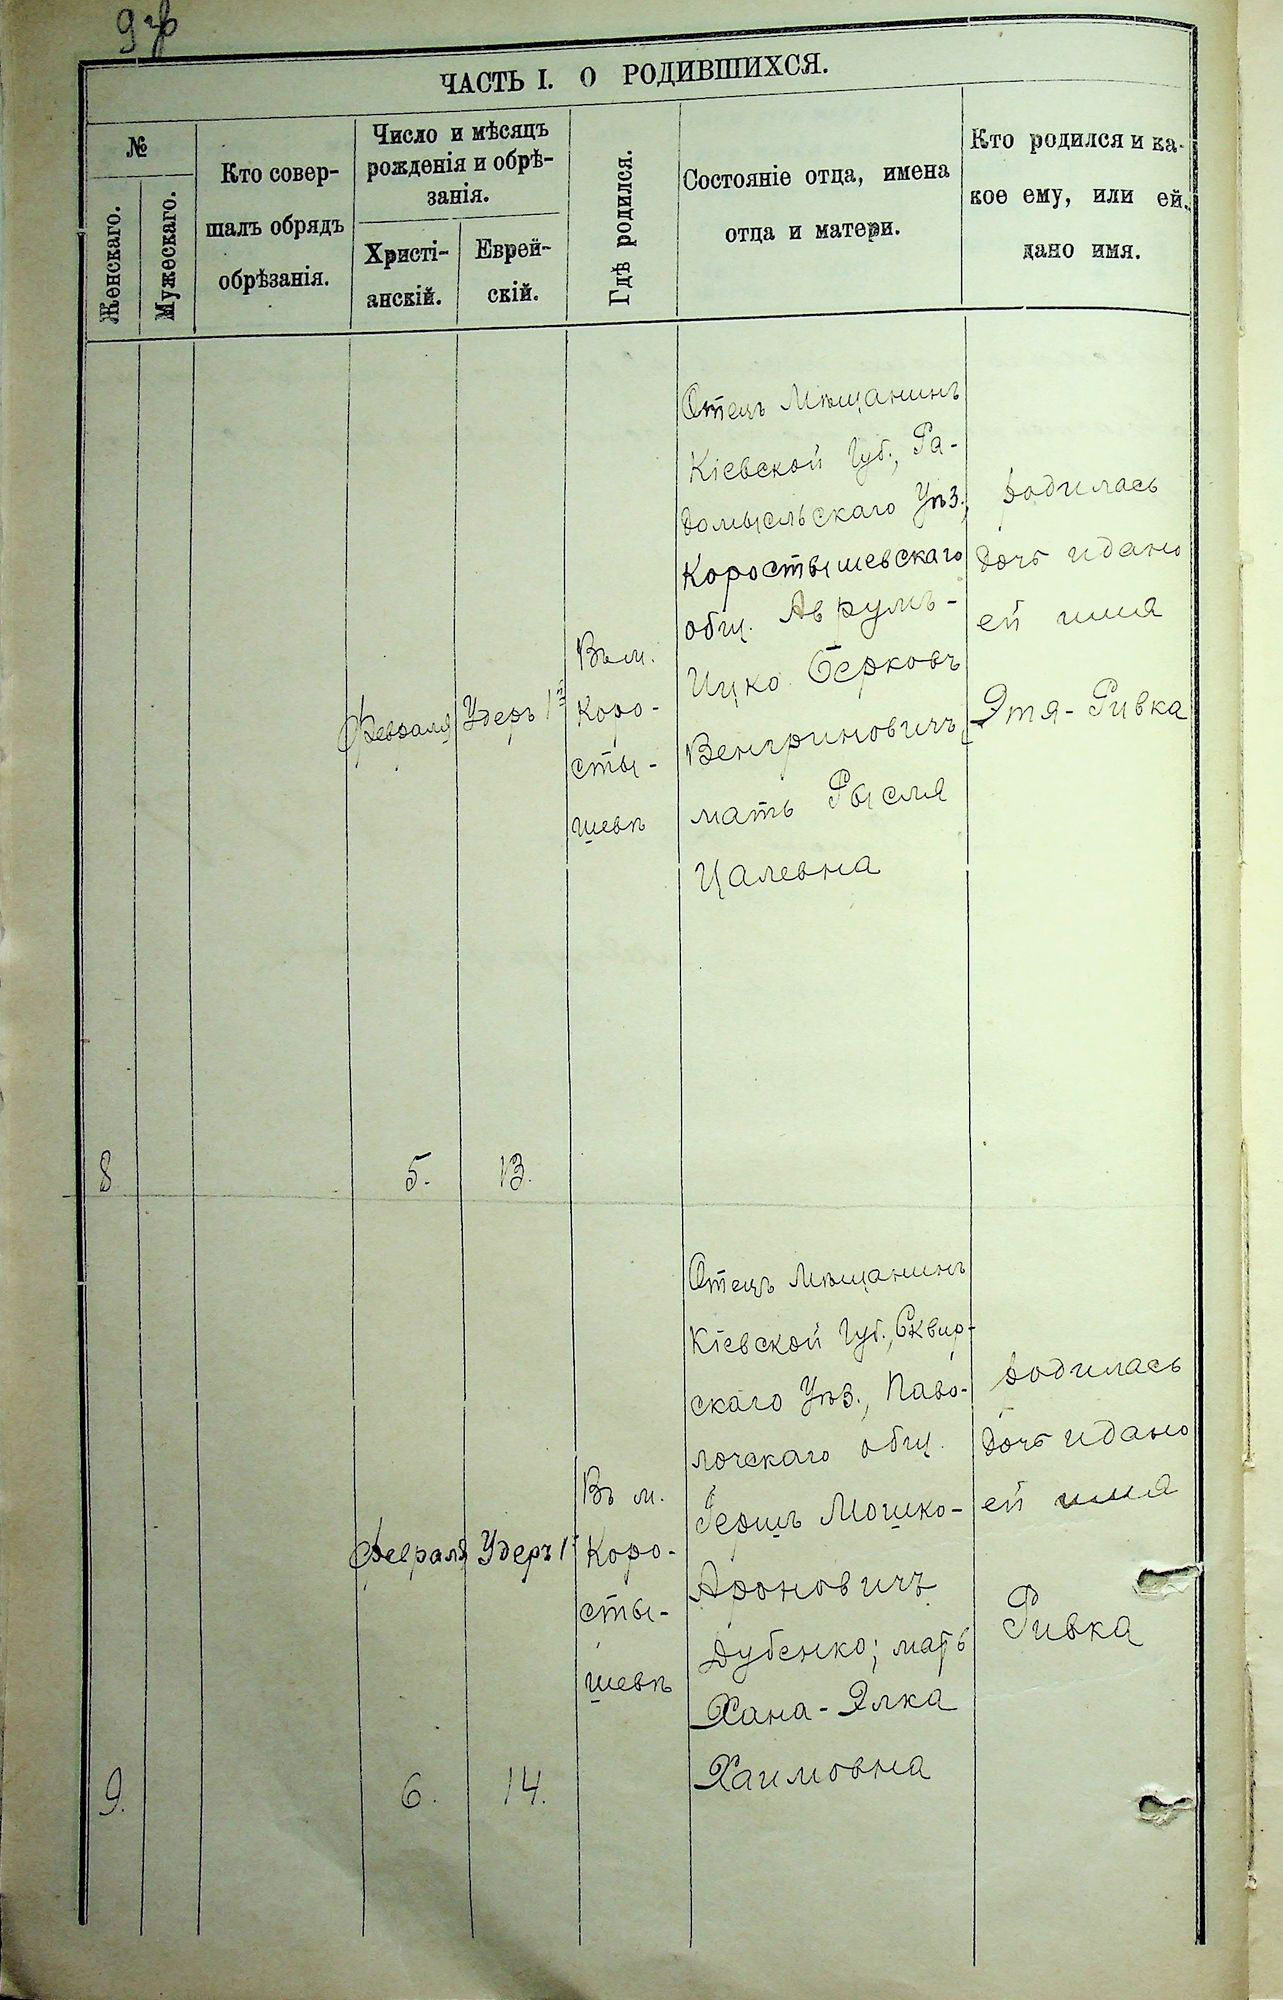 ЧАСТЬ I. О РОДИВШИХСЯ.
№
Женскаго.
Мужескаго.
Кто совер-
шалъ обрядъ
обрѣзанія.
Число и мѣсяцъ
рожденія и обрѣ-
занія.
Христі-
анскій.
Еврей-
скій.
Гдѣ родился.
Состояніе отца, имена
отца и матери.
Кто родился и ка-
кое ему, или ей,
дано имя.
8
Февраля
5.
Удеръ
13.
Въ м.
Коро-
сты-
шевѣ
Отецъ Мѣщанинъ
Кіевской Губ., Ра-
домысльскаго Уѣз.,
Коростышевскаго
общ. Аврумъ-
Ицко Берковъ
Венгриновичъ,
мать Рысля
Цалевна
родилась
дочь и дано
ей имя
Этя-Ривка
9.
Февраля
6.
Удеръ
14.
Въ м.
Коро-
сты-
шевѣ
Отецъ Мѣщанинъ
Кіевской Губ., Сквир-
скаго Уѣз., Паво-
лочскаго общ.
Гершъ Мошко-
Ароновичъ
Дубенко; мать
Хана-Элка
Хаимовна
родилась
дочь и дано
ей имя
Ривка